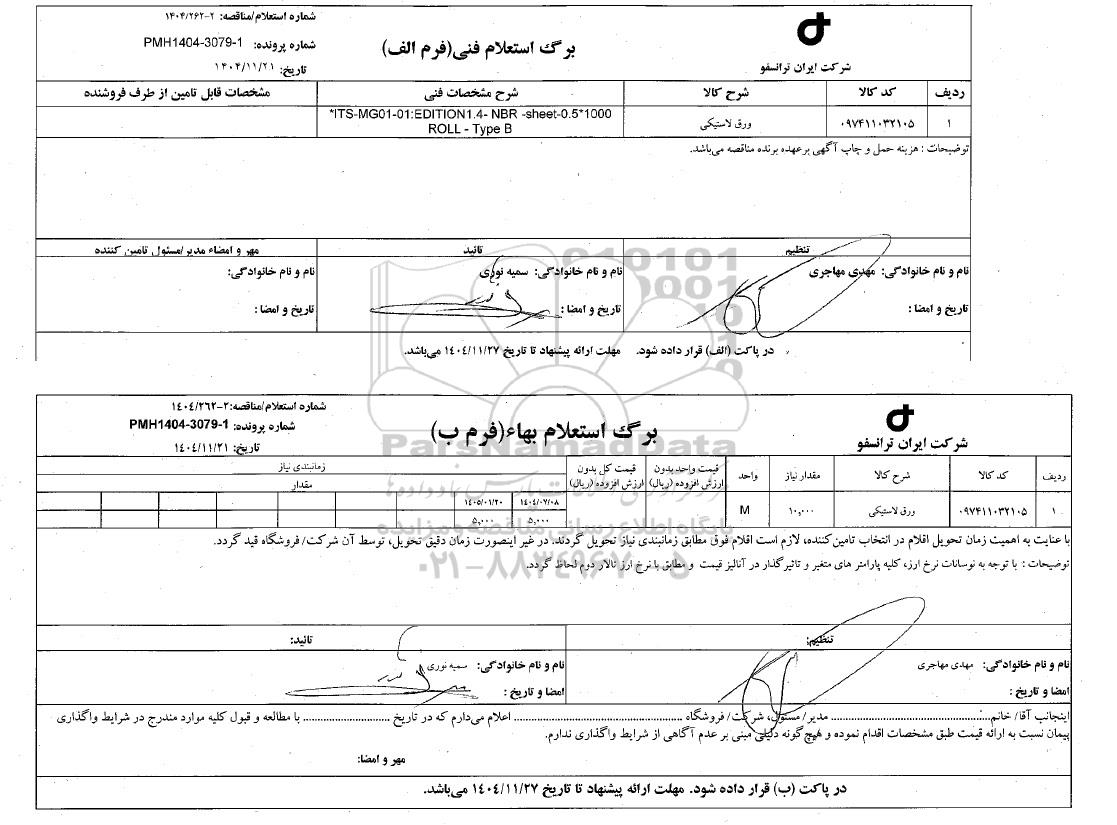 شماره استعلام/مناقصه: ۲-۱۴۰۴/۲۶۲
شماره پرونده: PMH1404-3079-1
تاریخ: ۱۴۰۴/۱۱/۲۱
برگ استعلام فنی(فرم الف)
شرکت ایران ترانسفو
ردیف کد کالا شرح کالا شرح مشخصات فنی مشخصات قابل تامین از طرف فروشنده
۱ ۰۹۷۴۱۱۰۳۲۱۰۵ ورق لاستیکی ITS-MG01-01:EDITION1.4- NBR -sheet-0.5*1000*
ROLL - Type B
توضیحات : هزینه حمل و چاپ آگهی برعهده برنده مناقصه می‌باشد.
تنظیم تائید مهر و امضاء مدیر/مسئول تامین کننده
نام و نام خانوادگی: مهدی مهاجری نام و نام خانوادگی: سمیه نوری نام و نام خانوادگی:
تاریخ و امضا : تاریخ و امضا : تاریخ و امضا :
در پاکت (الف) قرار داده شود. مهلت ارائه پیشنهاد تا تاریخ ۱۴۰۴/۱۱/۲۷ می‌باشد.
شماره استعلام/مناقصه:۲-۱۴۰۴/۲۶۲
شماره پرونده: PMH1404-3079-1
تاریخ: ۱۴۰۴/۱۱/۲۱
برگ استعلام بهاء(فرم ب)
شرکت ایران ترانسفو
ParsNamadData
ردیف کد کالا شرح کالا مقدار نیاز واحد قیمت واحد بدون ارزش افزوده (ریال) قیمت کل بدون ارزش افزوده (ریال) زمانبندی نیاز
مقدار
۱ ۰۹۷۴۱۱۰۳۲۱۰۵ ورق لاستیکی ۱۰,۰۰۰ M ۱۴۰۴/۰۷/۰۸ ۱۴۰۵/۰۱/۲۰
۵,۰۰۰ ۵,۰۰۰
پایگاه اطلاع رسانی مناقصه و مزایده
با عنایت به اهمیت زمان تحویل اقلام در انتخاب تامین‌کننده، لازم است اقلام فوق مطابق زمانبندی نیاز تحویل گردند. در غیر اینصورت زمان دقیق تحویل، توسط آن شرکت/ فروشگاه قید گردد.
توضیحات : با توجه به نوسانات نرخ ارز، کلیه پارامتر های متغیر و تاثیرگذار در آنالیز قیمت و مطابق با نرخ ارز تالار دوم لحاظ گردد.
۰۲۱-۸۸۳۴۹۶۷۰-۵
تنظیم: تائید:
نام و نام خانوادگی: مهدی مهاجری نام و نام خانوادگی: سمیه نوری
امضا و تاریخ : امضا و تاریخ :
اینجانب آقا/ خانم........................ مدیر/ مسئول، شرکت/ فروشگاه ........................ اعلام می‌دارم که در تاریخ ........................ با مطالعه و قبول کلیه موارد مندرج در شرایط واگذاری
پیمان نسبت به ارائه قیمت طبق مشخصات اقدام نموده و هیچ گونه دلیلی مبنی بر عدم آگاهی از شرایط واگذاری ندارم.
مهر و امضا:
در پاکت (ب) قرار داده شود. مهلت ارائه پیشنهاد تا تاریخ ۱۴۰۴/۱۱/۲۷ می‌باشد.